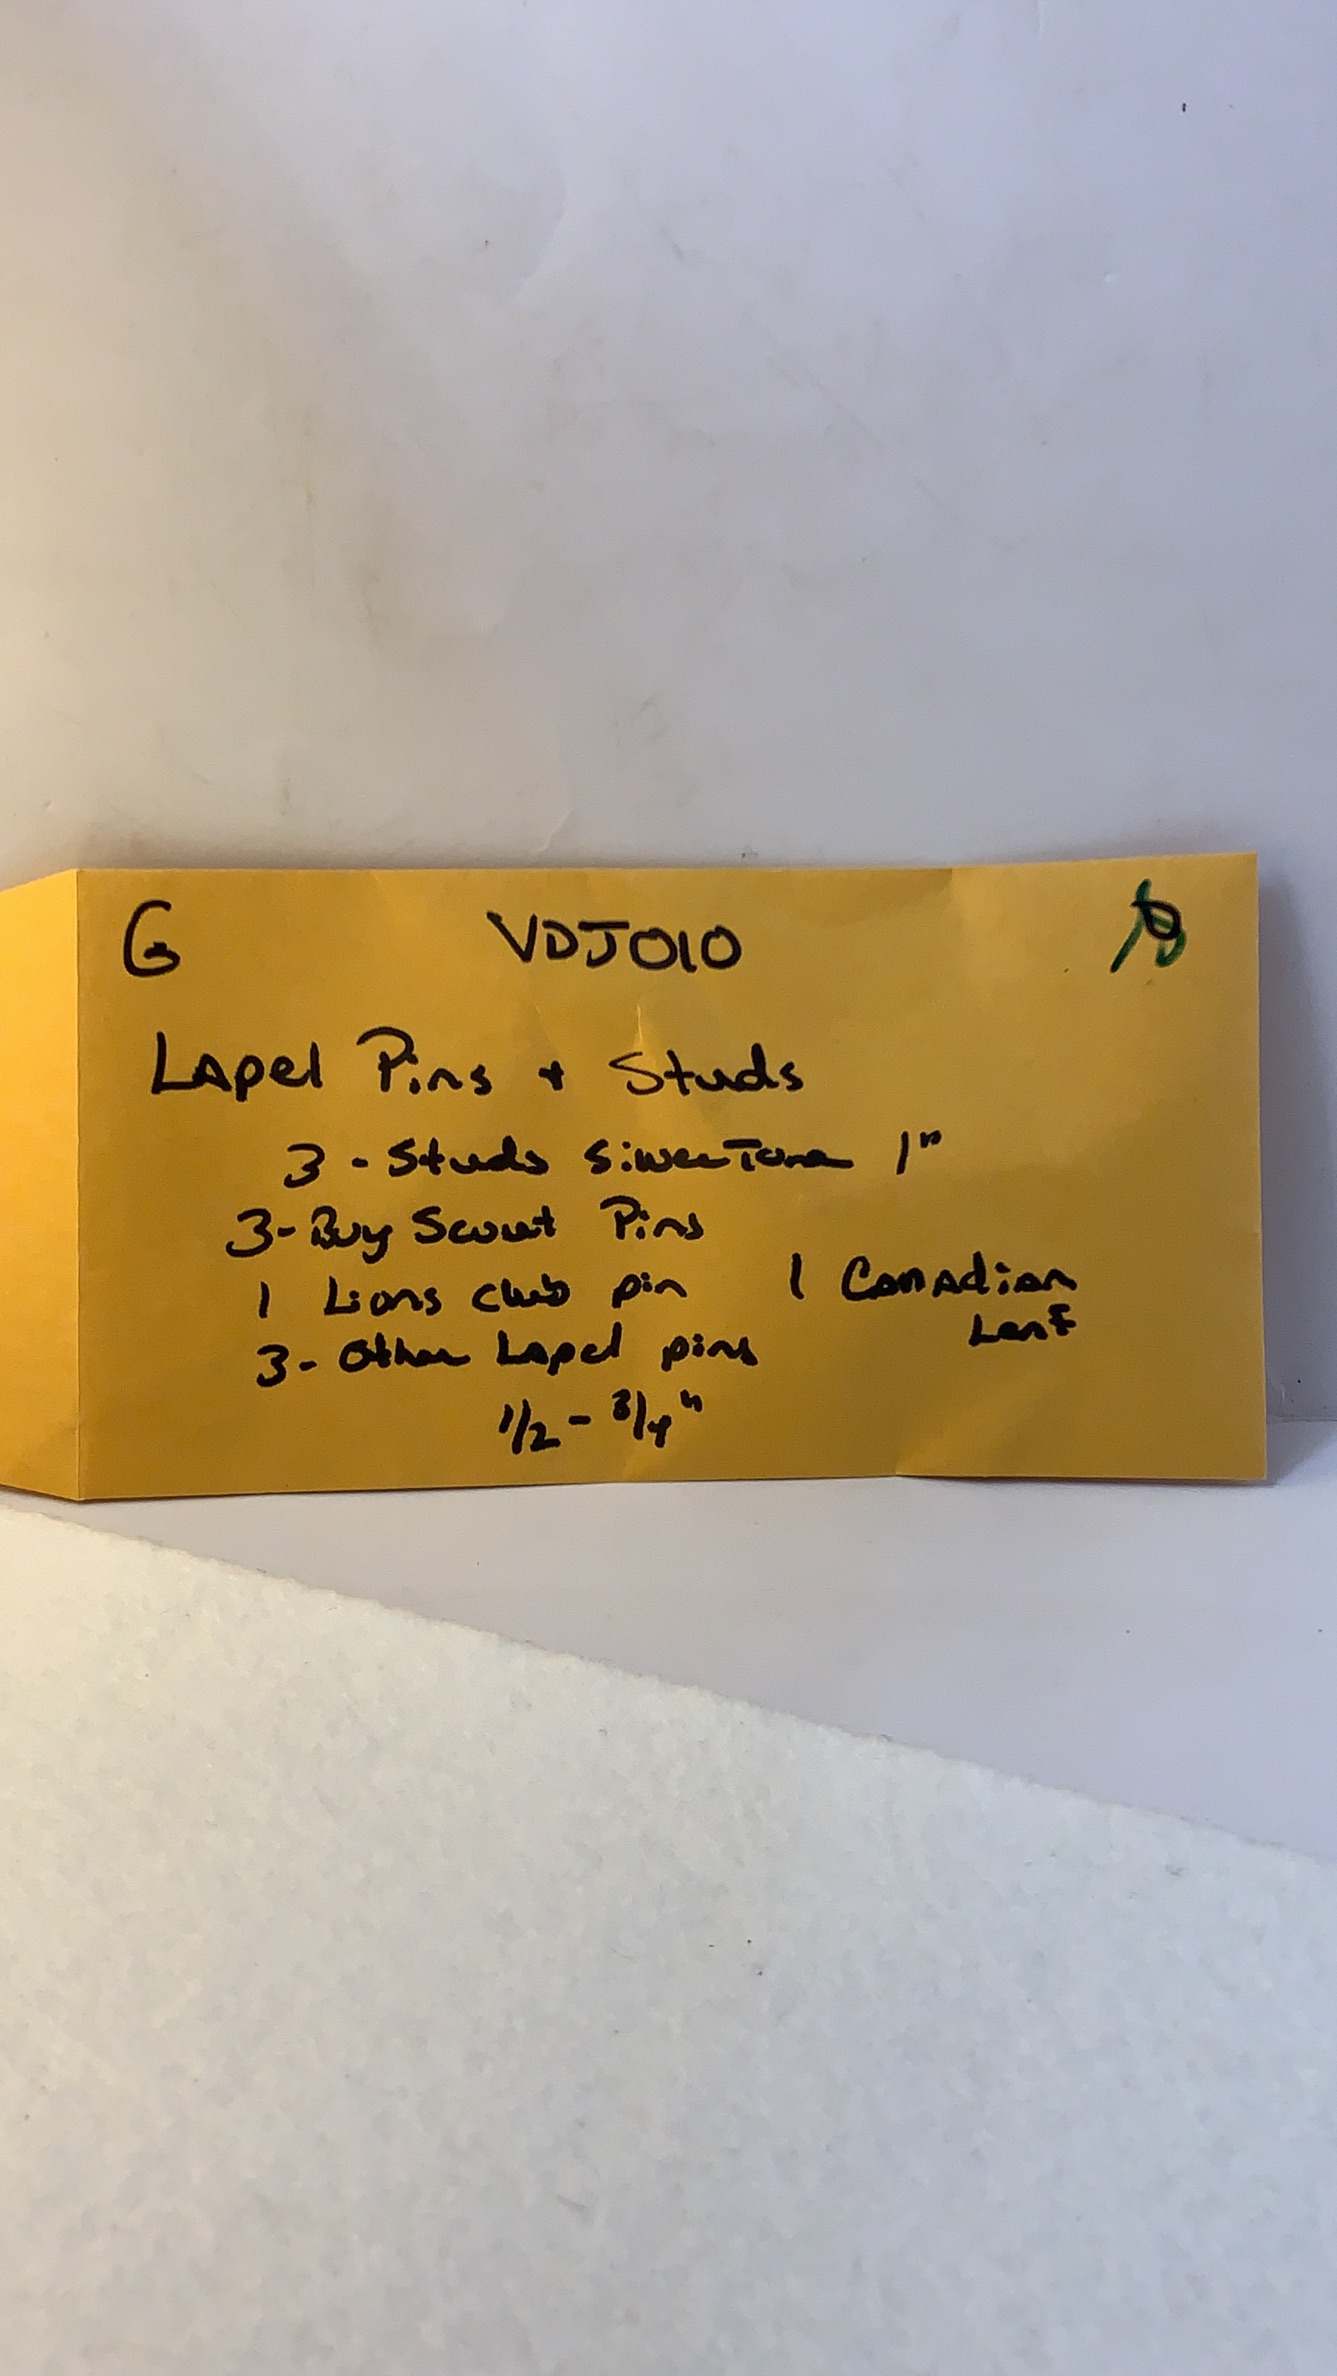 G VDJ010
Lapel Pins + Studs
3 - Studs SilverTone 1"
3 - Boy Scout Pins
1 Lions club pin 1 Canadian
Leaf
3 - Other Lapel pins
1/2 - 3/4"